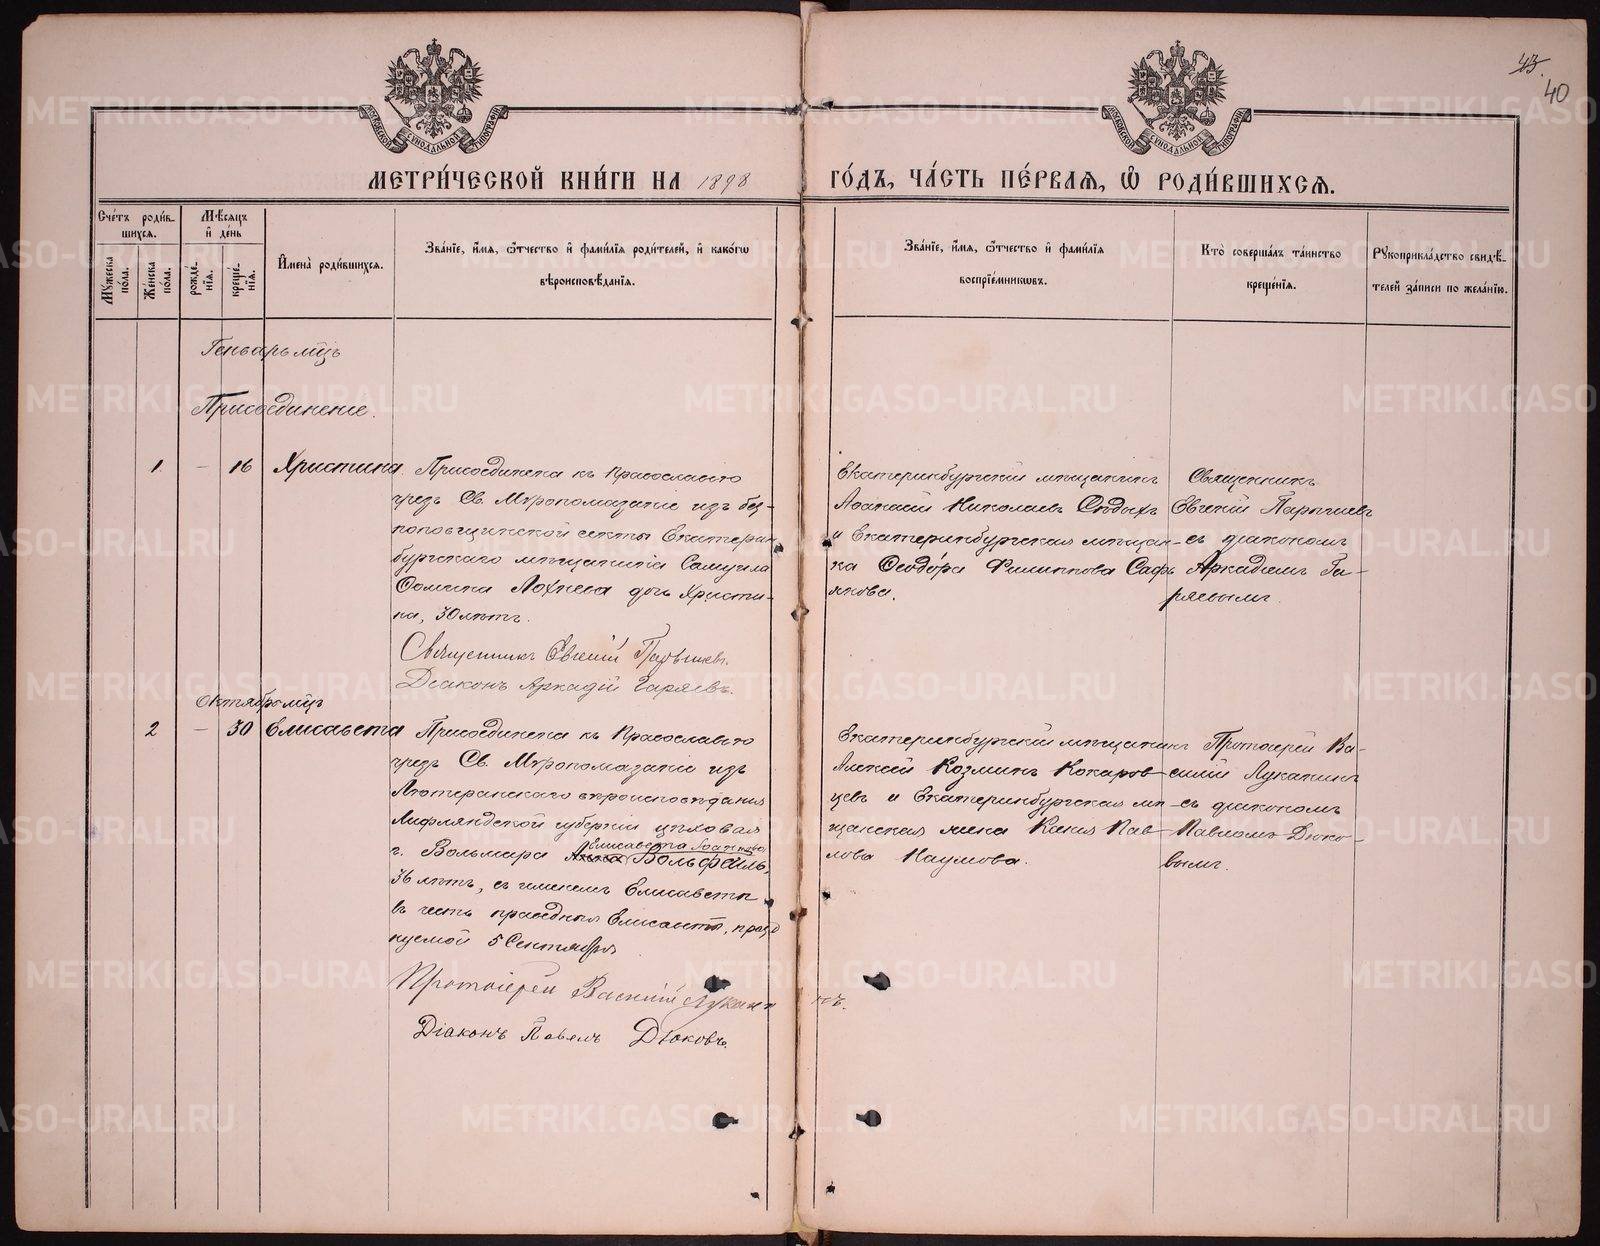 43.
40
МОСКОВСКОЙ СѴНОДАЛЬНОЙ ТИПОГРАФІИ
МОСКОВСКОЙ СѴНОДАЛЬНОЙ ТИПОГРАФІИ
МЕТРИ́ЧЕСКОЙ КНИ́ГИ НА 1898 ГО́ДЪ, ЧА́СТЬ ПЕ́РВАЯ, Ѡ РОДИ́ВШИХСЯ.
Сче́тъ роди́в-
шихся.
Мѣ́сяцъ
и де́нь
Му́жеска
по́ла.
Же́нска
по́ла.
рожде́-
нїя.
креще́-
нїя.
И́мена роди́вшихся.
Зва́нїе, и́мя, ѻ́тчество и фами́лїя роди́телей, и како́гѡ
вѣроисповѣ́данїя.
Зва́нїе, и́мя, ѻ́тчество и фами́лїя
воспрїе́мникѡвъ.
Кто̀ соверша́лъ та́инство
креще́нїя.
Рукоприкла́дство свидѣ́-
телей за́писи по жела́нїю.
Генварь мцъ
Присоединение.
1. — 16 Христина
Присоединена къ православію
чрезъ Св. Мѵропомазаніе изъ без-
поповщинской секты Екатерин
бургскаго мѣщанина Самуила
Ѳомина Лохнева дочь Христи-
на, 30 лѣтъ.
Священникъ Евгеній Парышев.
Діаконъ Аркадій Гаряевъ.
Екатеринбургскій мѣщанинъ
Аѳанасій Николаевъ
и Екатеринбургская мѣщан-
ка Ѳеодора Филиппова Сафь
янова.
Священникъ
Евгеній Парышевъ
съ діакономъ
Аркадіемъ Га-
ряевымъ.
Октябрь мцъ
2 — 30 Елисавета
Присоединена къ Православію
чрезъ Св. Мѵропомазаніе изъ
Лютеранскаго вѣроисповѣданія
Лифляндской губерніи цѣховая
Елисавета Іоаннова
г. Вольмара Анна Вольфаиль,
36 лѣтъ, съ именемъ Елисаветы
въ честь праведныя Елисаветы, празд
нуемой 5 Сентября
Протоіерей Василій Луканинъ.
Діаконъ Павелъ Дюковъ.
Екатеринбургскій мѣщанинъ
Алексій Козминъ Кокаров
цевъ и Екатеринбургская мѣ-
щанская жена Павлова Наумова.
Протоіерей Ва-
силій Луканинъ
съ діакономъ
Павломъ Дюко-
вымъ.
METRIKI.GASO-URAL.RU